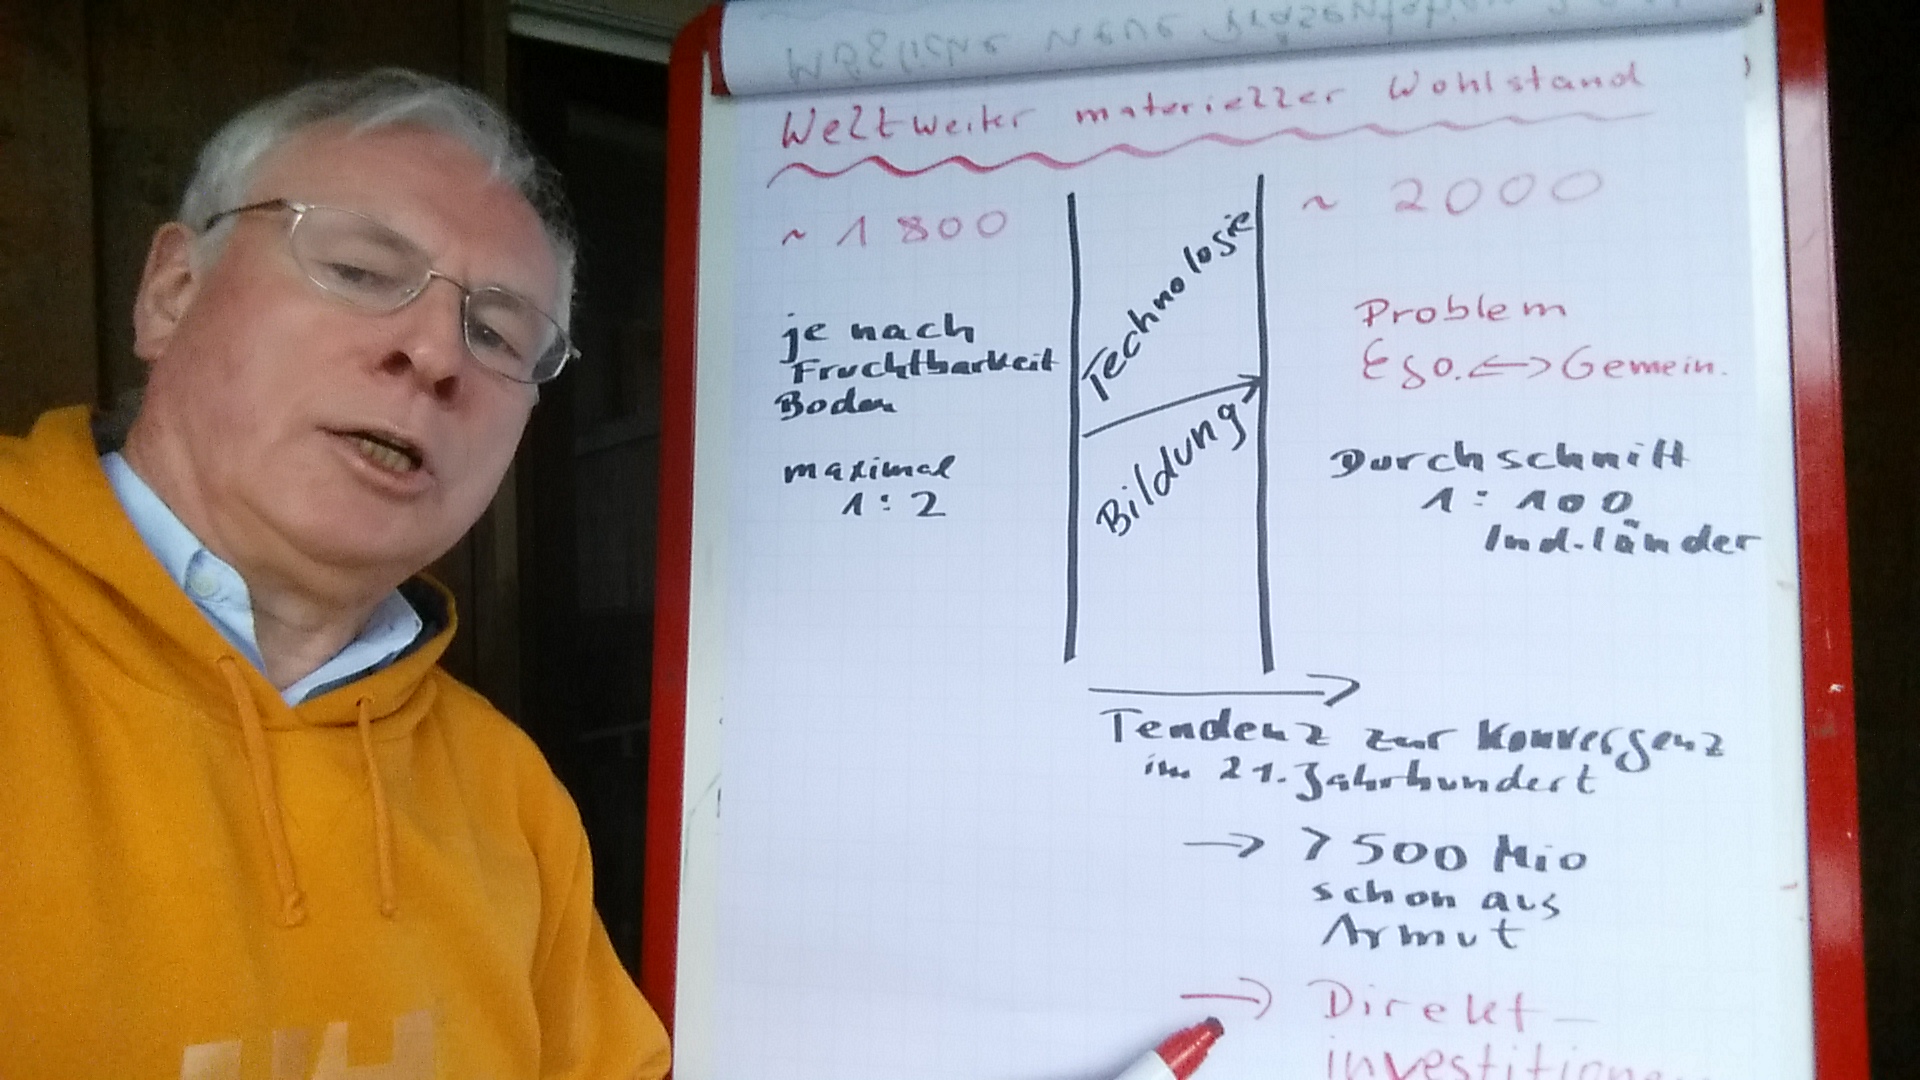 Weltweiter materieller Wohlstand
~ 1800
je nach
Fruchtbarkeit
Boden
maximal
1 : 2
Technologie
Bildung
~ 2000
Problem
Ego. <-> Gemein.
Durchschnitt
1 : 100
Ind.länder
Tendenz zur Konvergenz
im 21. Jahrhundert
→ > 500 Mio
schon aus
Armut
→ Direkt-
investitione